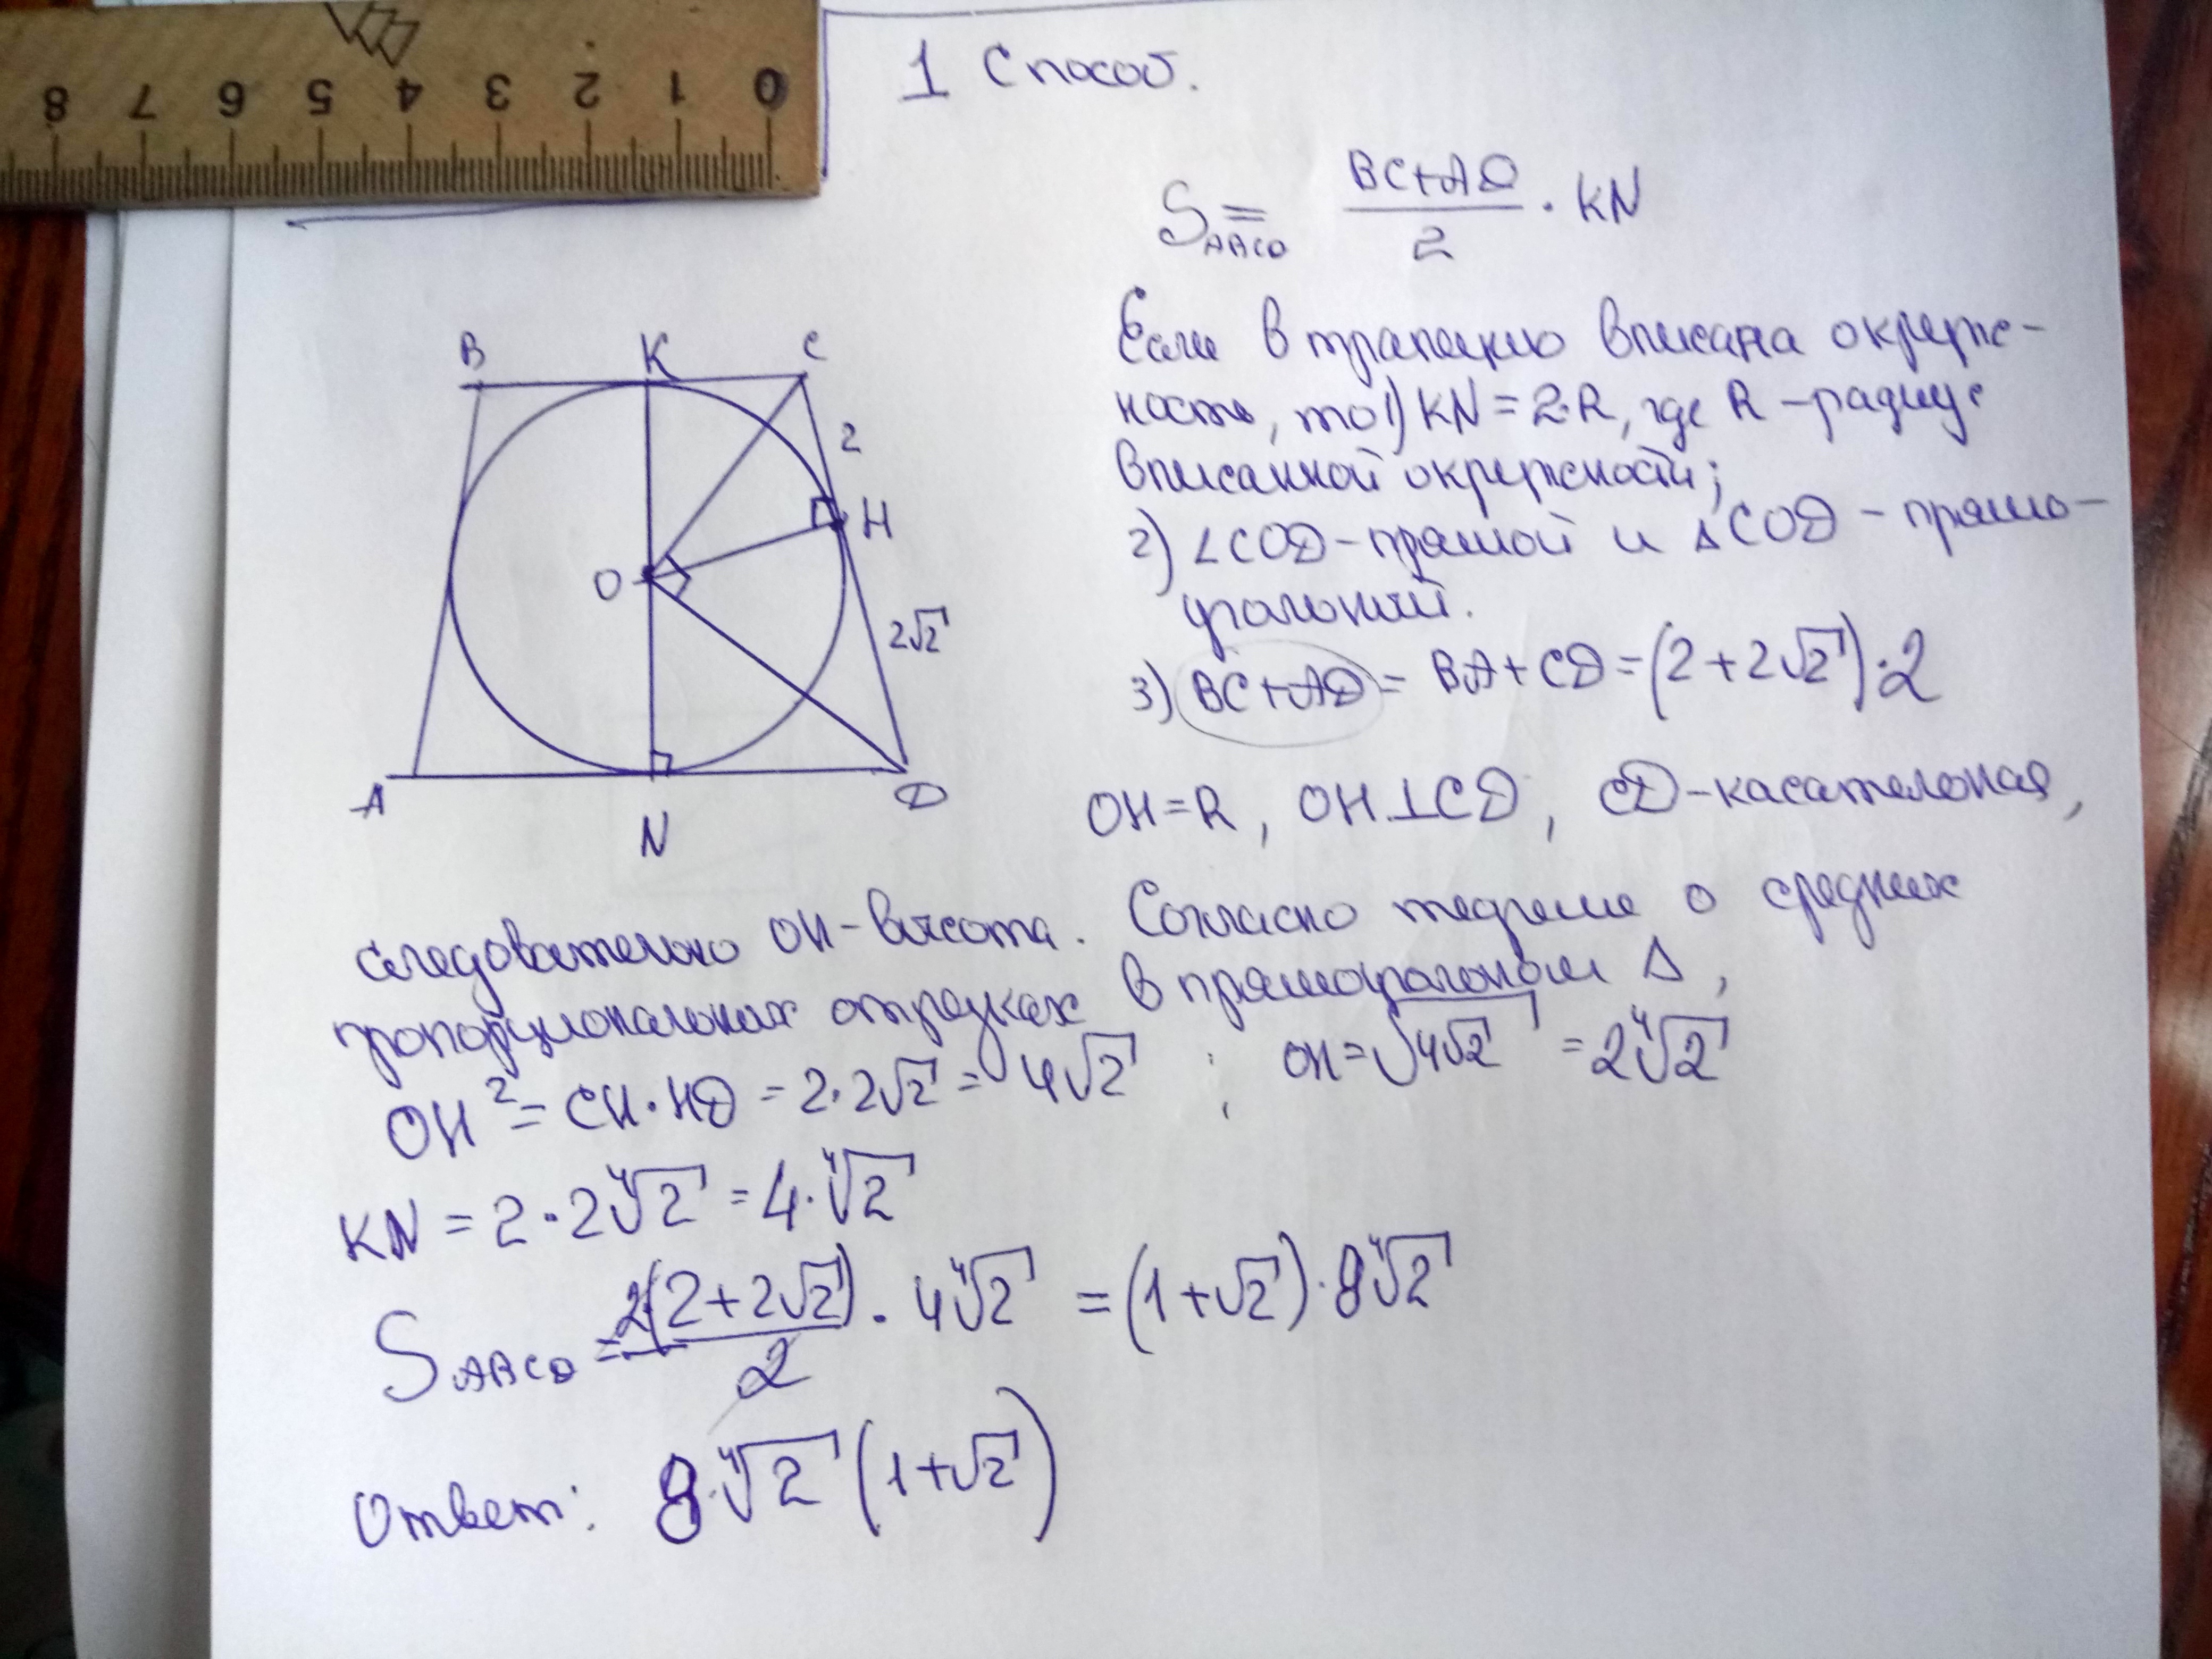 8 7 6 5 4 3 2 1 0
1 Способ.
S_ABCD = \frac{BC+AD}{2} · KN
Если в трапецию вписана окруж-
ность, то 1) KN = 2·R, где R – радиус
вписанной окружности;
2) ∠COD – прямой и △COD – прямо-
угольный.
3) BC+AD = BA+CD = (2+2√2)·2
B K C
2
H
O
2√2
A N D
OH = R, OH ⊥ CD, CD – касательная,
следовательно OH – высота. Согласно теореме о средних
пропорциональных отрезках в прямоугольном △,
OH² = CH·HD = 2·2√2 = 4√2 ; OH = √(4√2) = 2∜2
KN = 2·2∜2 = 4·∜2
S_ABCD = \frac{2(2+2√2)}{2} · 4∜2 = (1+√2)·8∜2
Ответ: 8·∜2 (1+√2)